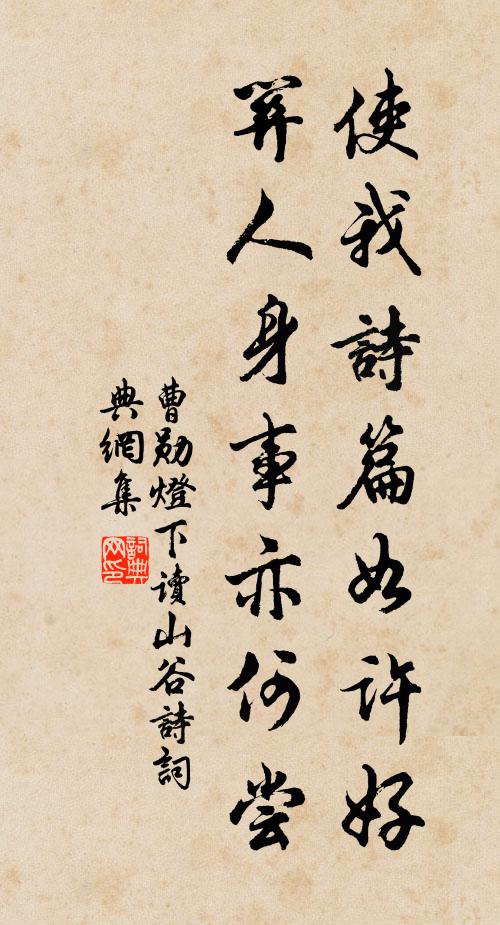 使我詩篇如許好
關人身事亦何尝
曹勋燈下讀山谷詩詞
典網集
詞典网印